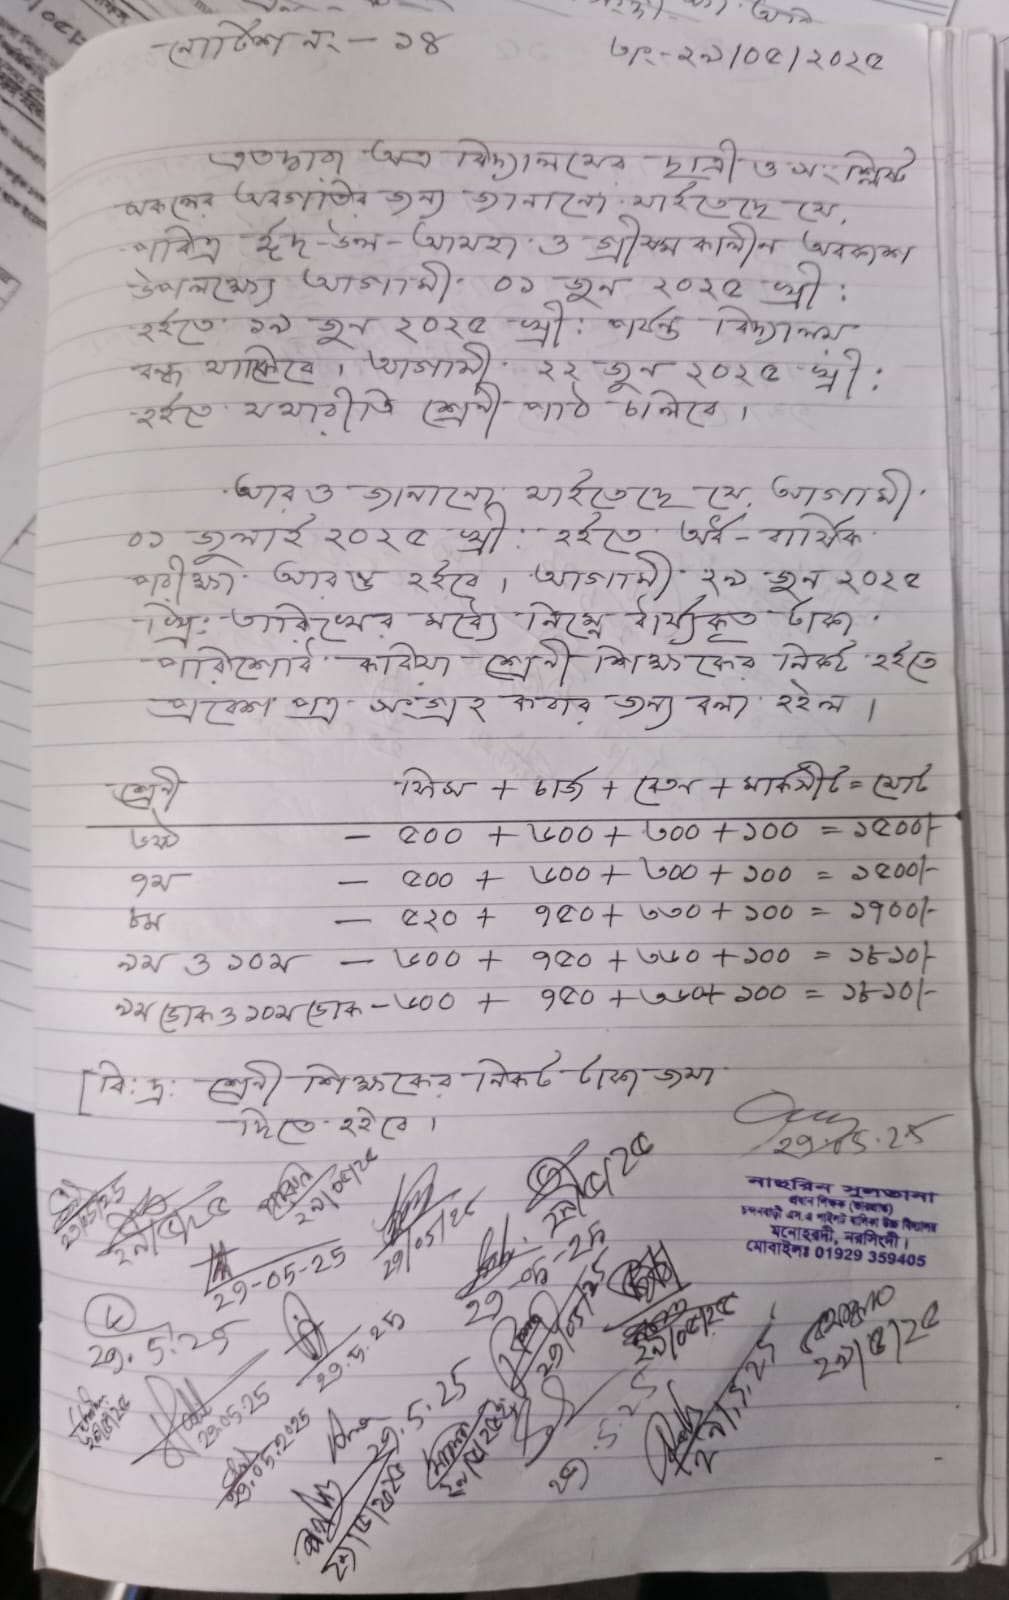 নোটিশ নং - ১৪
তাং - ২৯/০৫/২০২৫
এতদ্বারা অত্র বিদ্যালয়ের ছাত্রী ও সংশ্লিষ্ট
সকলের অবগতির জন্য জানানো যাইতেছে যে,
পবিত্র ঈদ-উল-আযহা ও গ্রীষ্মকালীন অবকাশ
উপলক্ষ্যে আগামী ০১ জুন ২০২৫ খ্রী:
হইতে ১৯ জুন ২০২৫ খ্রী: পর্যন্ত বিদ্যালয়
বন্ধ থাকিবে। আগামী ২২ জুন ২০২৫ খ্রী:
হইতে যথারীতি শ্রেনী পাঠ চলিবে।
আরও জানানো যাইতেছে যে, আগামী
০১ জুলাই ২০২৫ খ্রী: হইতে অর্ধ-বার্ষিক
পরীক্ষা আরম্ভ হইবে। আগামী ২৯ জুন ২০২৫
খ্রি: তারিখের মধ্যে নিম্নে ধার্য্যকৃত টাকা
পরিশোধ করিয়া শ্রেনী শিক্ষকের নিকট হইতে
প্রবেশ পত্র সংগ্রহ করার জন্য বলা হইল।
শ্রেনী ফিস + চার্জ + বেতন + মার্কসীট = মোট
৬ষ্ঠ - ৫০০ + ৬০০ + ৩০০ + ১০০ = ১৫০০/-
৭ম - ৫০০ + ৬০০ + ৩০০ + ১০০ = ১৫০০/-
৮ম - ৫২০ + ৭৫০ + ৩৩০ + ১০০ = ১৭০০/-
৯ম ও ১০ম - ৬০০ + ৭৫০ + ৩৬০ + ১০০ = ১৮১০/-
৯ম ভোক ও ১০ম ভোক - ৬০০ + ৭৫০ + ৩৬০ + ১০০ = ১৮১০/-
[বি:দ্র: শ্রেনী শিক্ষকের নিকট টাকা জমা
দিতে হইবে।
29.05.25
নাছরিন সুলতানা
প্রধান শিক্ষক (ভারপ্রাপ্ত)
মনোহরদী, নরসিংদী।
মোবাইলঃ 01929 359405
29/05/25
২৯/৫/২৫
২৯/০৫/২৫
29/05/25
২৯/৫/২৫
29-05-25
29-05-25
29.5.25
29.5.25
29/05/25
২৯/০৫/২৫
২৯/৫/২৫
২৯/৫/২৫
29.05.25
29.05.2025
29.5.25
২৯/৫/২০২৫